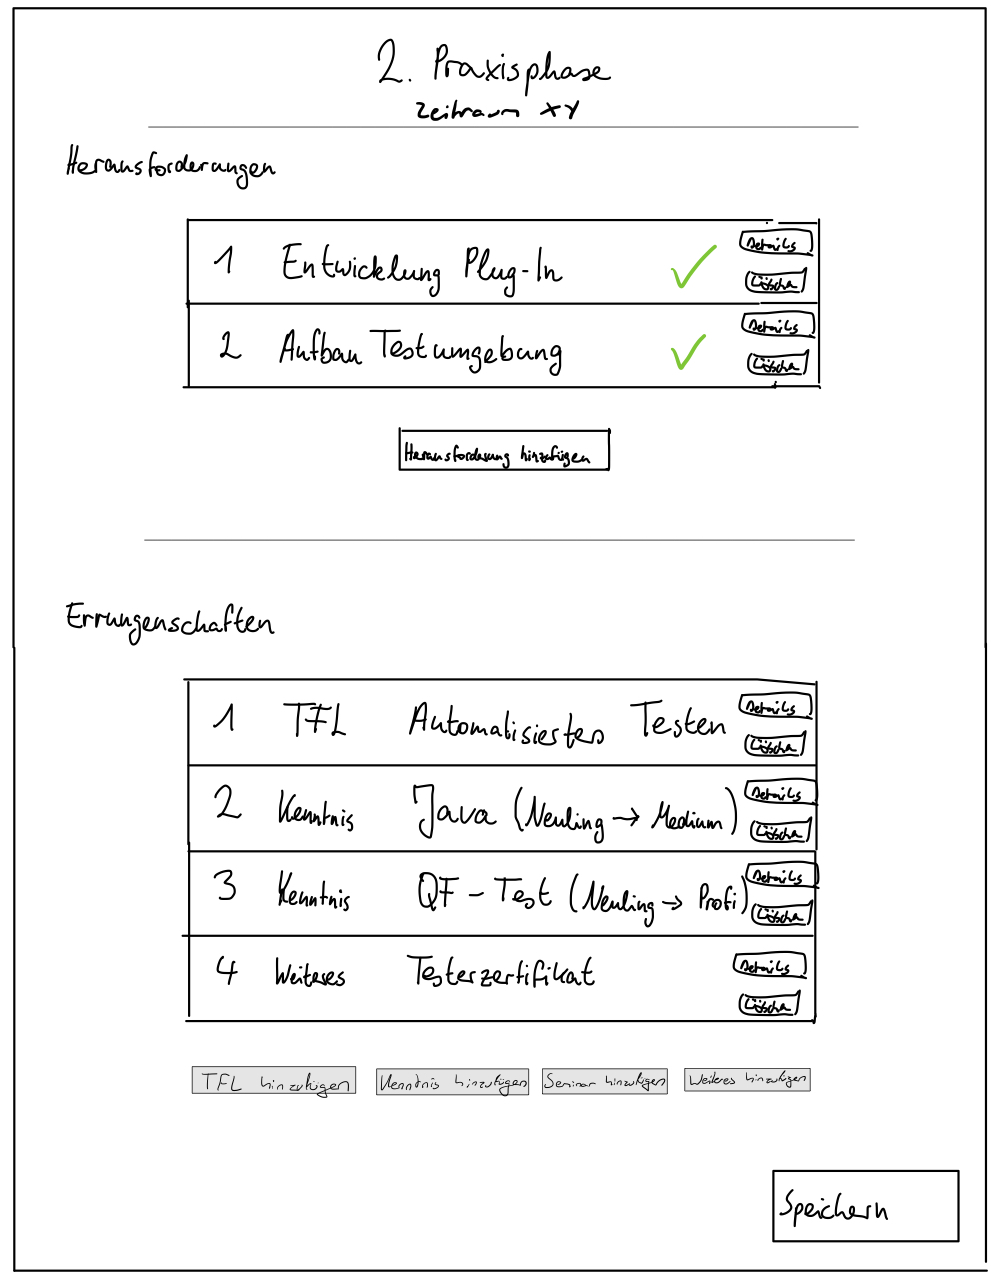 2. Praxisphase
Zeitraum XY
Herausforderungen
1 Entwicklung Plug-In Details
Löschen
2 Aufbau Testumgebung Details
Löschen
Herausforderung hinzufügen
Errungenschaften
1 TFL Automatisiertes Testen Details
Löschen
2 Kenntnis Java (Neuling → Medium) Details
Löschen
3 Kenntnis QF-Test (Neuling → Profi) Details
Löschen
4 Weiteres Testerzertifikat Details
Löschen
TFL hinzufügen Kenntnis hinzufügen Seminar hinzufügen Weiteres hinzufügen
Speichern